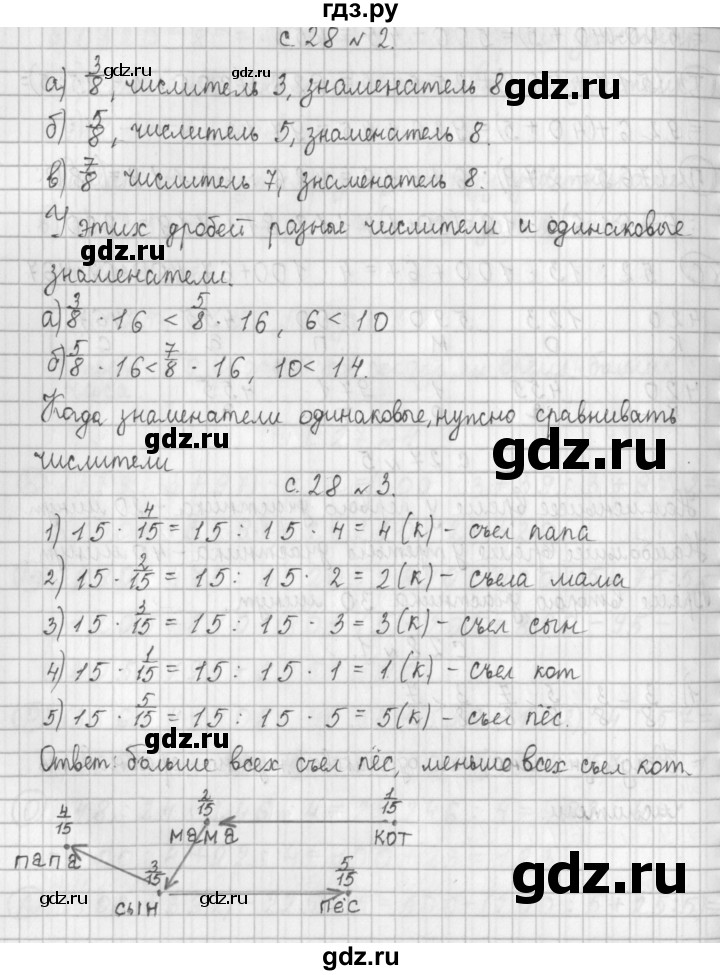 гдз.ру
с. 28 № 2.
а) 3/8, числитель 3, знаменатель 8
б) 5/8, числитель 5, знаменатель 8.
в) 7/8 числитель 7, знаменатель 8.
У этих дробей разные числители и одинаковые
знаменатели.
а) 3/8 · 16 < 5/8 · 16, 6 < 10
б) 5/8 · 16 < 7/8 · 16, 10 < 14.
Когда знаменатели одинаковые, нужно сравнивать
числители
с. 28 № 3.
1) 15 · 4/15 = 15 : 15 · 4 = 4 (к) – съел папа
2) 15 · 2/15 = 15 : 15 · 2 = 2 (к) – съела мама
3) 15 · 3/15 = 15 : 15 · 3 = 3 (к) – съел сын
4) 15 · 1/15 = 15 : 15 · 1 = 1 (к) – съел кот
5) 15 · 5/15 = 15 : 15 · 5 = 5 (к) – съел пёс.
Ответ: больше всех съел пёс, меньше всех съел кот.
4/15 2/15 1/15
папа мама кот
3/15 5/15
сын пёс
gdz.ru
gdz.ru
gdz.ru
gdz.ru
gdz.ru
gdz.ru
gdz.ru
gdz.ru
gdz.ru
gdz.ru
gdz.ru
gdz.ru
gdz.ru